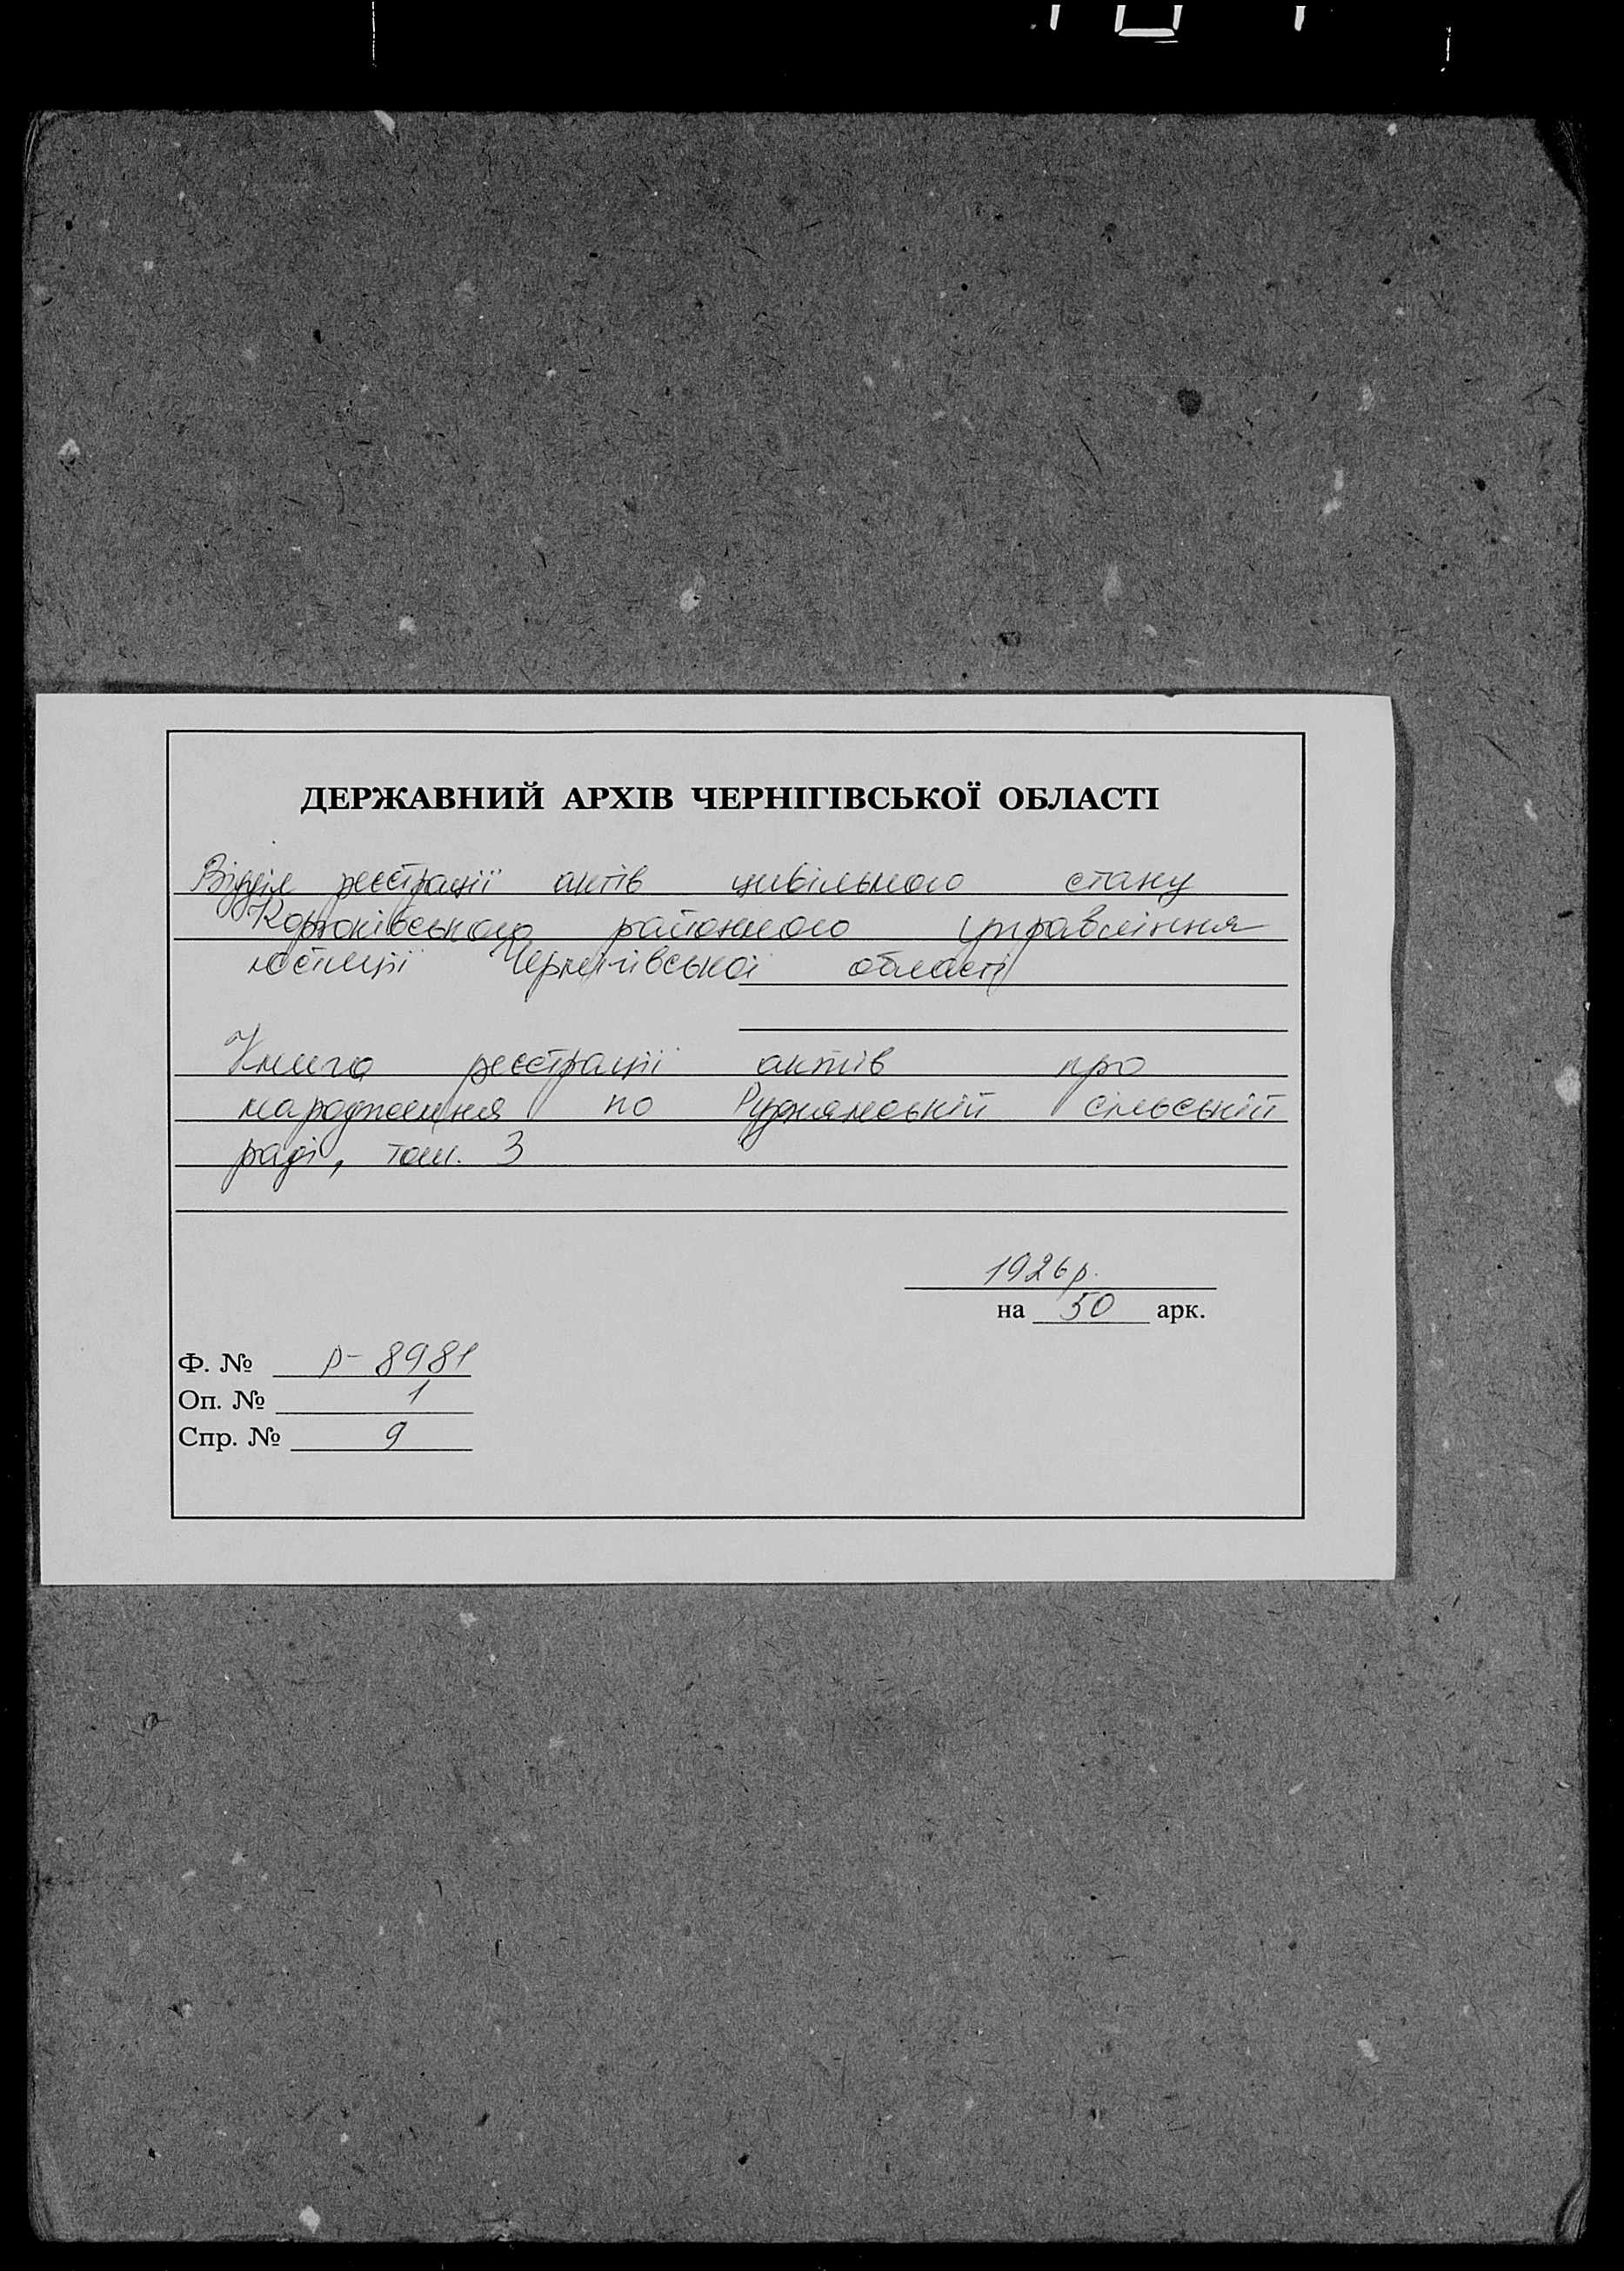 ДЕРЖАВНИЙ АРХІВ ЧЕРНІГІВСЬКОЇ ОБЛАСТІ
Відділ реєстрації актів цивільного стану
Корюківського районного управління
юстиції Чернігівської області
Книга реєстрації актів про
народження по Руднянській сільській
раді, том. 3
1926 р.
на 50 арк.
Ф. № Р-8981
Оп. № 1
Спр. № 9